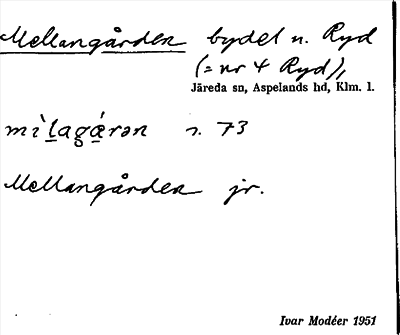 Mellangården bydel n. Ryd
(= nr 4 Ryd),
Järeda sn, Aspelands hd, Klm. l.
mìlagǽrən s. 73
Mellangården jr.
Ivar Modéer 1951